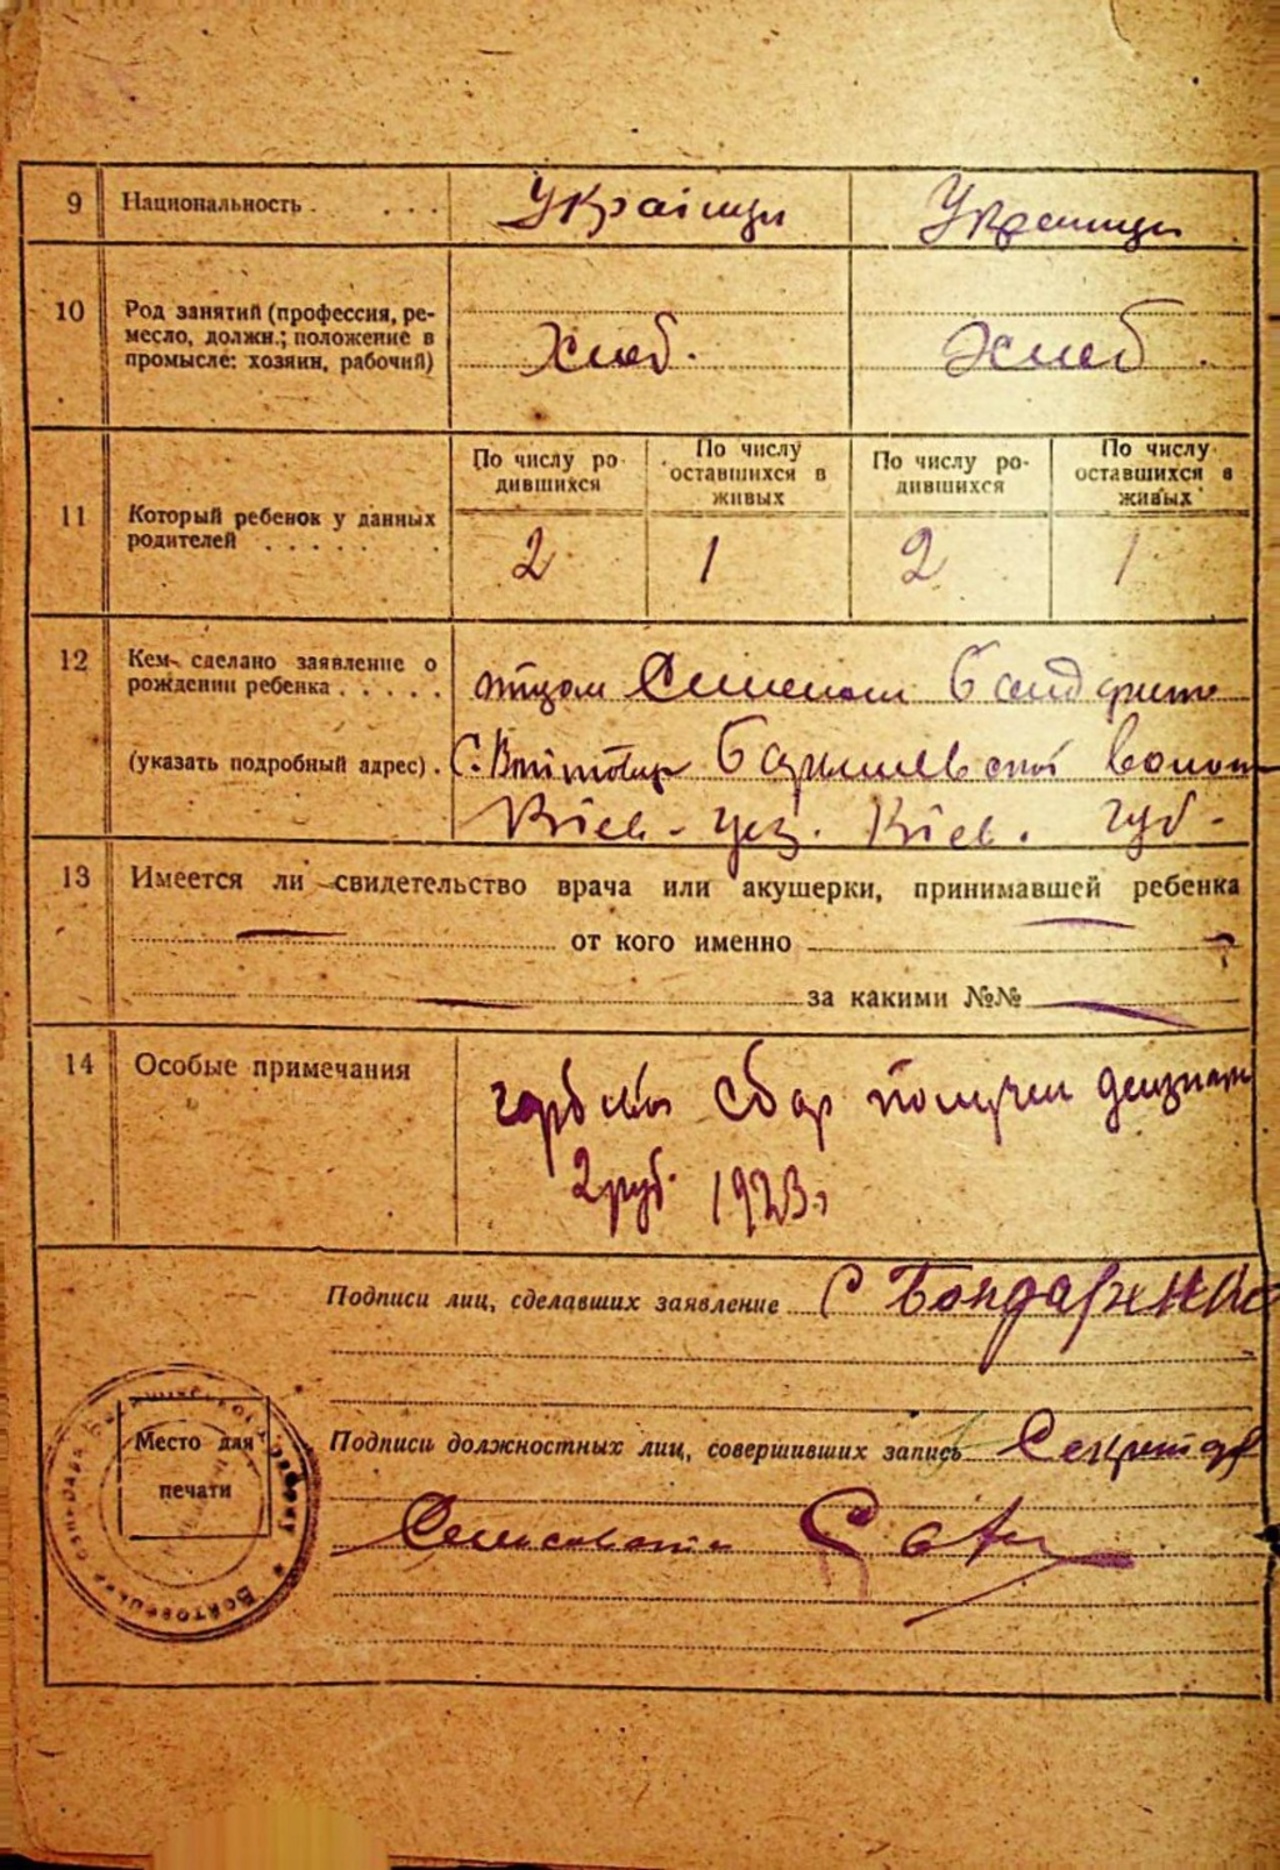 9 Национальность . . . . Українци Українци
10 Род занятий (профессия, ре-
месло, должн.; положение в
промысле: хозяин, рабочий) Хлеб. Хлеб.
По числу ро-
дившихся По числу
оставшихся в
живых По числу ро-
дившихся По числу
оставшихся в
живых
11 Который ребенок у данных
родителей . . . . . . . 2 1 2 1
12 Кем сделано заявление о
рождении ребенка . . . . . отцом Семеном
(указать подробный адрес) . С. Баришевской волост
Киев - уез. Киев. губ -
13 Имеется ли свидетельство врача или акушерки, принимавшей ребенка
от кого именно
за какими №№
14 Особые примечания сбор получен
2 руб. 1923 г
Подписи лиц, сделавших заявление С Бондаренко
Подписи должностных лиц, совершивших запись Секретар
Место для
печати